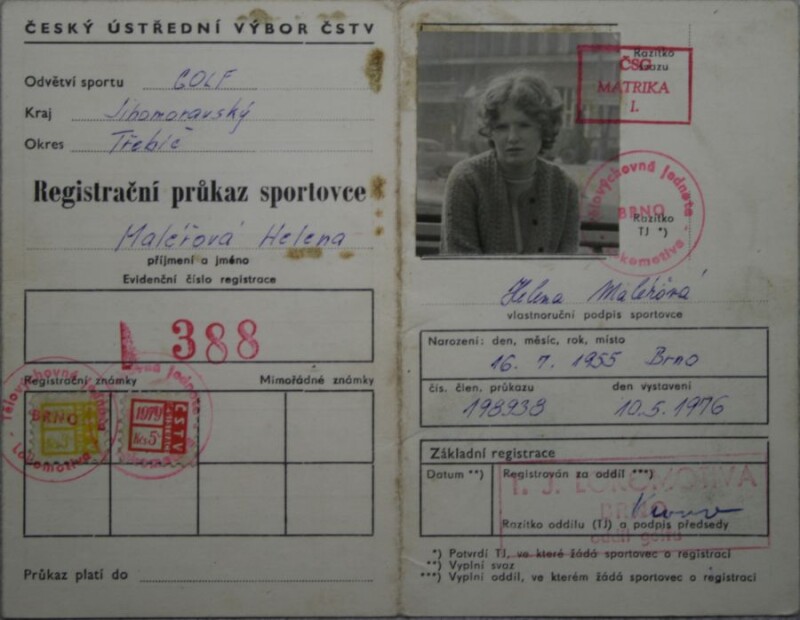 ČESKÝ ÚSTŘEDNÍ VÝBOR ČSTV
Odvětví sportu GOLF
Kraj Jihomoravský
Okres Třebíč
Registrační průkaz sportovce
Maléřová Helena
příjmení a jméno
Evidenční číslo registrace
388
Registrační známky Mimořádné známky
Tělovýchovná jednota
BRNO
Lokomotiva
1979
Kčs 5
ČSTV
Průkaz platí do
Razítko
svazu
ČSG
MATRIKA
I.
Tělovýchovná jednota
BRNO
Lokomotiva
Razítko
TJ *)
Helena Maléřová
vlastnoruční podpis sportovce
Narození: den, měsíc, rok, místo
16. 7. 1955 Brno
čís. člen. průkazu den vystavení
198938 10.5.1976
Základní registrace
Datum **) Registrován za oddíl ***)
T. J. LOKOMOTIVA
BRNO
oddíl golfu
Razítko oddílu (TJ) a podpis předsedy
*) Potvrdí TJ, ve které žádá sportovec o registraci
**) Vyplní svaz
***) Vyplní oddíl, ve kterém žádá sportovec o registraci